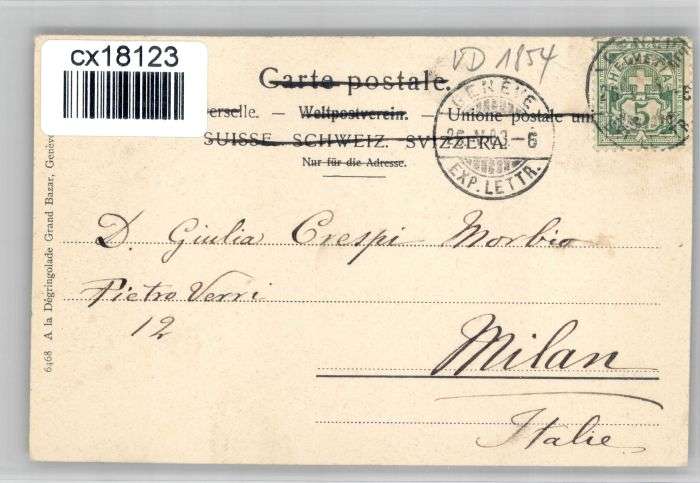 cx18123
VD 1854
Carte postale.
erselle. — Weltpostverein. — Unione postale uni
SUISSE. SCHWEIZ. SVIZZERA.
Nur für die Adresse.
GENÈVE
EXP. LETTR.
HELVETIA
5
D. Giulia Crespi Morbio
Pietro Verri
12
Milan
Italie
6468 A la Dégringolade Grand Bazar, Genève